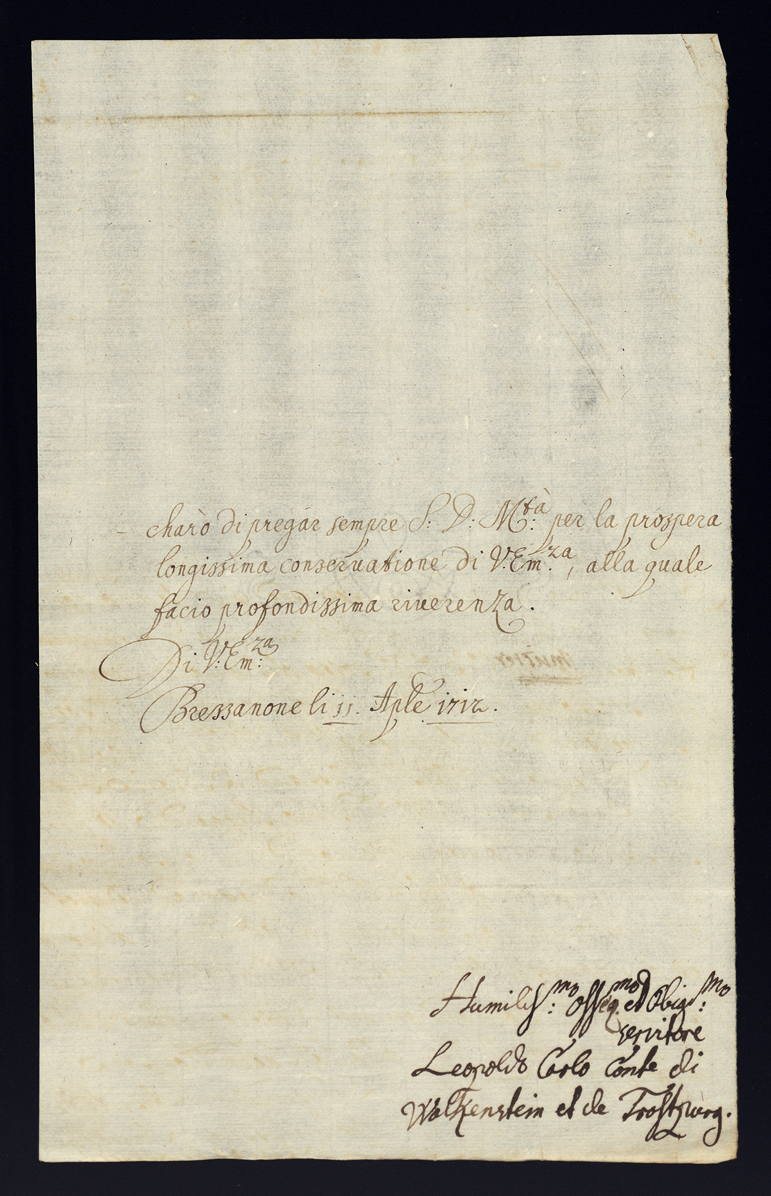 charò di pregar sempre S: D: M:tà per la prospera
longissima conseruatione di V: Em:za, alla quale
facio profondissima riuerenza.
Di V: Em:za
Bressanone li 11. Aple 1712.
Humiliss:mo osseq:mo et Oblig:mo
servitore
Leopoldo Carlo Conte di
Wolkenstein et de Trostpurg.